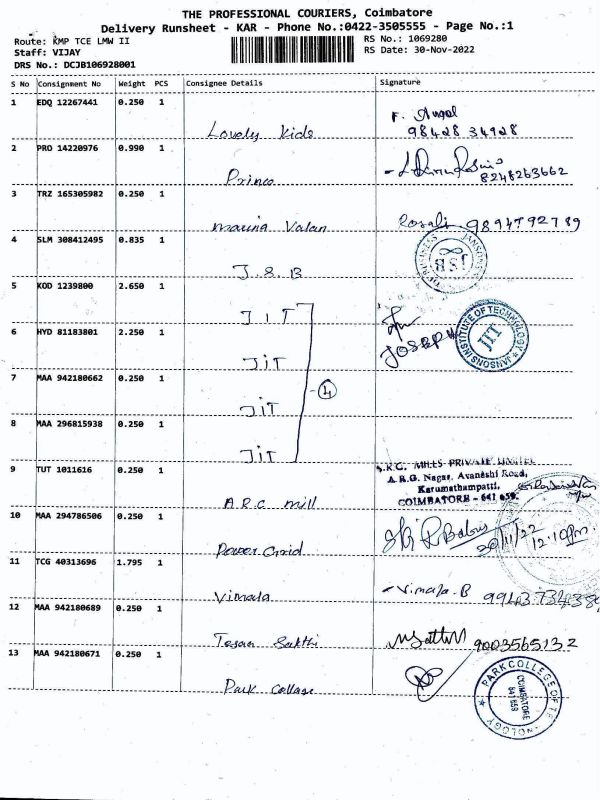 THE PROFESSIONAL COURIERS, Coimbatore
Delivery Runsheet - KAR - Phone No.:0422-3505555 - Page No.:1
Route: KMP TCE LMW II
RS No.: 1069280
Staff: VIJAY
RS Date: 30-Nov-2022
DRS No.: DCJB106928001
S No Consignment No Weight PCS Consignee Details Signature
1 EDQ 12267441 0.250 1
Lovely Kids
F. Angel
98428 34928
2 PRO 14220976 0.990 1
Prince
8248263662
3 TRZ 165305982 0.250 1
Maria Valan
Rosali 9894792789
4 SLM 308412495 0.835 1
J.S.B
JSB
5 KOD 1239800 2.650 1
JIT
6 HYD 81183801 2.250 1
JiT
JOSEPH
JANSONS INSTITUTE OF TECHNOLOGY
JIT
7 MAA 942180662 0.250 1
JiT
4
8 MAA 296815938 0.250 1
JiT
9 TUT 1011616 0.250 1
A.R.C mill
MILLS PRIVATE LIMITED
A.R.G. Nagar, Avanashi Road,
Karumathampatti,
COIMBATORE - 641 659.
10 MAA 294786506 0.250 1
Power Grid
R Babu
30/11/22
12.10pm
11 TCG 40313696 1.795 1
Vimala
- Vimala.B
12 MAA 942180689 0.250 1
Sakthi
9003565132
13 MAA 942180671 0.250 1
Park College
PARK COLLEGE OF TECHNOLOGY
COIMBATORE
641 659